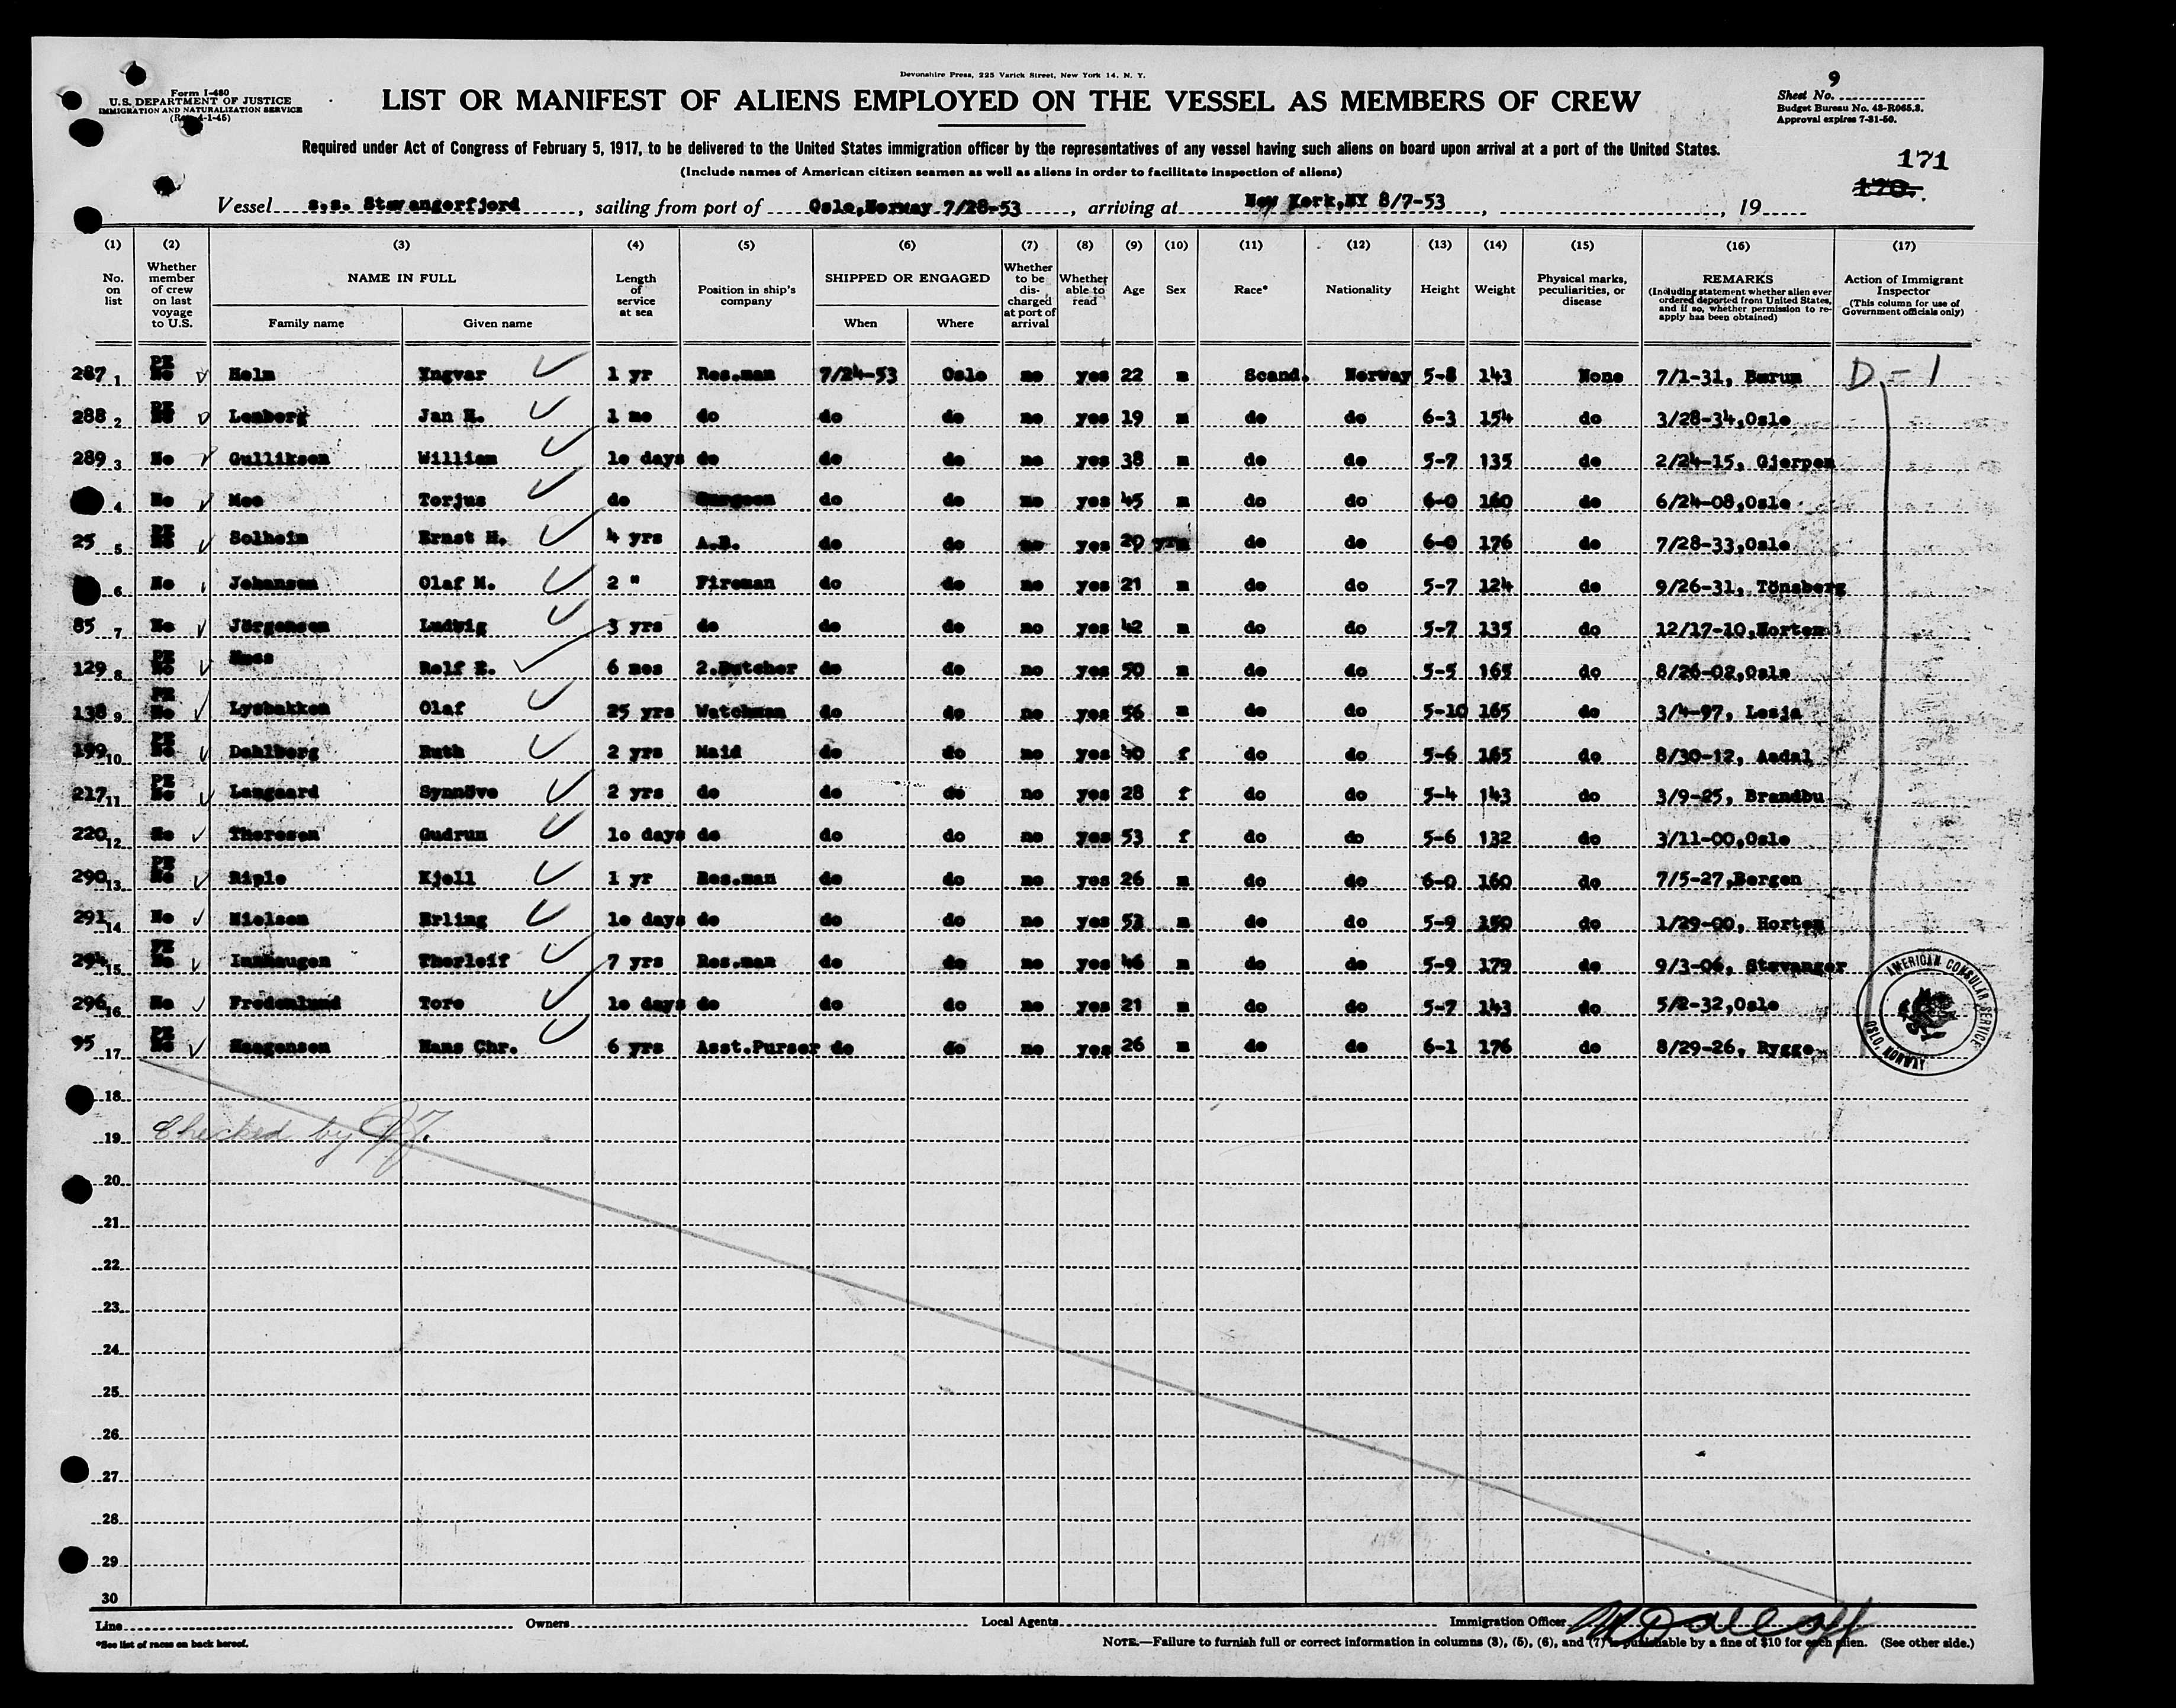 Devonshire Press, 225 Varick Street, New York 14, N. Y.
Form I-480
U.S. DEPARTMENT OF JUSTICE
IMMIGRATION AND NATURALIZATION SERVICE
(Rev. 4-1-45)
LIST OR MANIFEST OF ALIENS EMPLOYED ON THE VESSEL AS MEMBERS OF CREW
9
Sheet No.
Budget Bureau No. 43-R065.3.
Approval expires 7-31-50.
Required under Act of Congress of February 5, 1917, to be delivered to the United States immigration officer by the representatives of any vessel having such aliens on board upon arrival at a port of the United States.
(Include names of American citizen seamen as well as aliens in order to facilitate inspection of aliens)
171
170.
Vessel s.s. Stavangerfjord, sailing from port of Oslo,Norway 7/28-53, arriving at New York,NY 8/7-53, , 19
(1) (2) (3) (4) (5) (6) (7) (8) (9) (10) (11) (12) (13) (14) (15) (16) (17)
No. on list
Whether member of crew on last voyage to U.S.
NAME IN FULL
Family name
Given name
Length of service at sea
Position in ship's company
SHIPPED OR ENGAGED
When
Where
Whether to be discharged at port of arrival
Whether able to read
Age
Sex
Race*
Nationality
Height
Weight
Physical marks, peculiarities, or disease
REMARKS
(Including statement whether alien ever ordered deported from United States, and if so, whether permission to re-apply has been obtained)
Action of Immigrant Inspector
(This column for use of Government officials only)
287 1 PE No Holm Yngvar 1 yr Res.man 7/24-53 Oslo no yes 22 m Scand. Norway 5-8 143 None 7/1-31, Bærum D-1
288 2 PE No Lemberg Jan H. 1 mo do do do no yes 19 m do do 6-3 154 do 3/28-34,Oslo
289 3 No Gulliksen William 1o days do do do no yes 38 m do do 5-7 135 do 2/24-15, Gjerpen
4 No Moe Torjus do Surgeon do do no yes 45 m do do 6-0 160 do 6/24-08,Oslo
25 5 PE No Solheim Ernst H. 4 yrs A.B. do do no yes 20 m do do 6-0 176 do 7/28-33,Oslo
6 No Johansen Olaf M. 2 " Fireman do do no yes 21 m do do 5-7 124 do 9/26-31, Tönsberg
85 7 No Jörgensen Ludvig 3 yrs do do do no yes 42 m do do 5-7 135 do 12/17-10,Horten
129 8 PE No Rolf E. 6 mos 2.Butcher do do no yes 50 m do do 5-5 165 do 8/26-02,Oslo
138 9 PE No Lysbakken Olaf 25 yrs Watchman do do no yes 56 m do do 5-10 165 do 3/4-97, Lesja
199 10 PE No Dahlberg Ruth 2 yrs Maid do do no yes 40 f do do 5-6 165 do 8/30-12, Aadal
217 11 PE No Langaard Synnöve 2 yrs do do do no yes 28 f do do 5-4 143 do 3/9-25, Brandbu
220 12 No Thoresen Gudrun 1o days do do do no yes 53 f do do 5-6 132 do 3/11-00,Oslo
290 13 PE No Riple Kjell 1 yr Res.man do do no yes 26 m do do 6-0 160 do 7/5-27,Bergen
291 14 No Nielsen Erling 1o days do do do no yes 53 m do do 5-9 150 do 1/29-00, Horten
294 15 PE No Innhaugen Thorleif 7 yrs Res.man do do no yes 46 m do do 5-9 179 do 9/3-06, Stavanger
296 16 No Fredenlund Tore 1o days do do do no yes 21 m do do 5-7 143 do 5/2-32,Oslo
95 17 PE No Haagensen Hans Chr. 6 yrs Asst.Purser do do no yes 26 m do do 6-1 176 do 8/29-26, Rygge
AMERICAN CONSULAR SERVICE
OSLO, NORWAY
18
19 Checked by
20
21
22
23
24
25
26
27
28
29
30
Line Owners Local Agents Immigration Officer
*See list of races on back hereof.
NOTE.—Failure to furnish full or correct information in columns (3), (5), (6), and (7) is punishable by a fine of $10 for each alien. (See other side.)